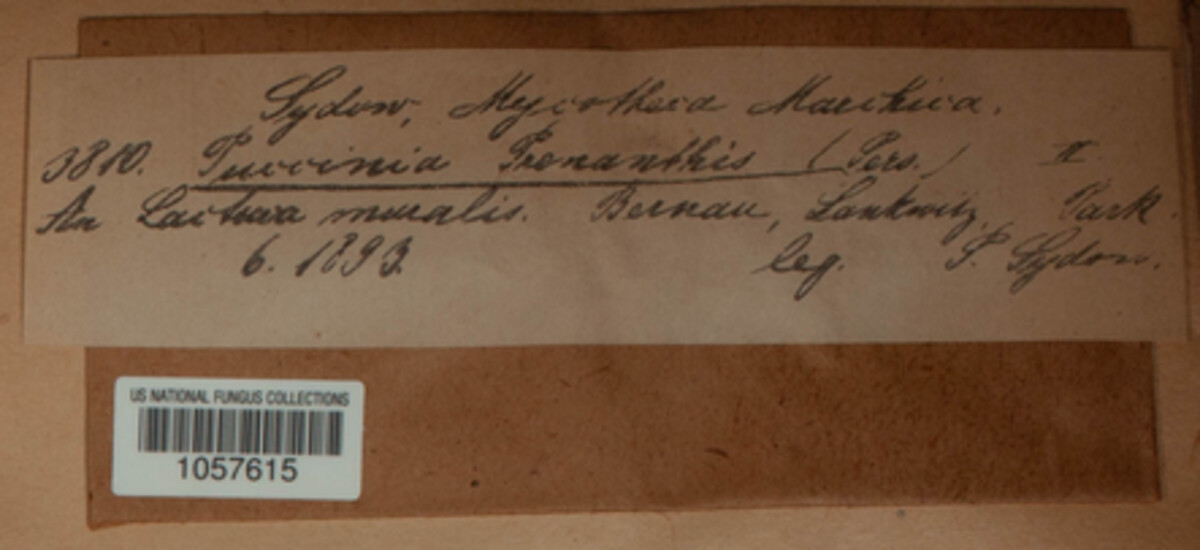 Sydow, Mycotheca Marchica.
3810. Puccinia Prenanthis (Pers.) II
An Lactuca muralis. Bernau, Lankwitz, Park.
6. 1893. leg. P. Sydow.
US NATIONAL FUNGUS COLLECTIONS
1057615